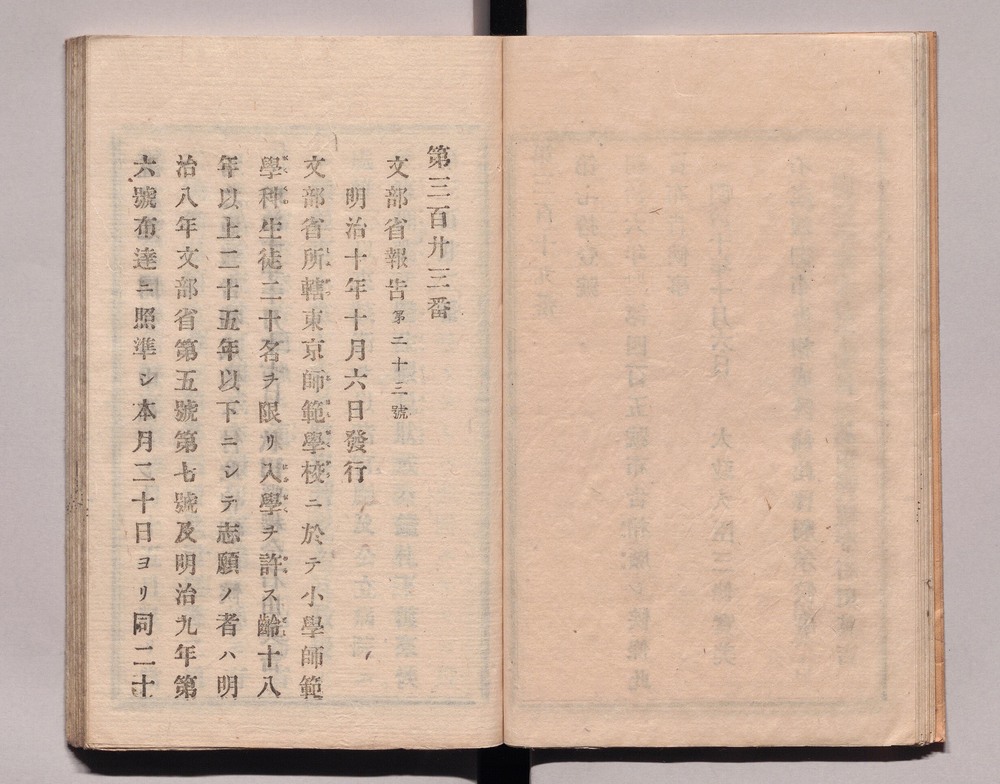 第三百廿三番
文部省報告第二十三號
明治十年十月六日發行
文部省所轄東京師範學校ニ於テ小學師範
學科生徒二十名ヲ限リ入學ヲ許ス齡十八
年以上二十五年以下ニシテ志願ノ者ハ明
治八年文部省第五號第七號及明治九年第
六號布達ニ照準シ本月二十日ヨリ同二十